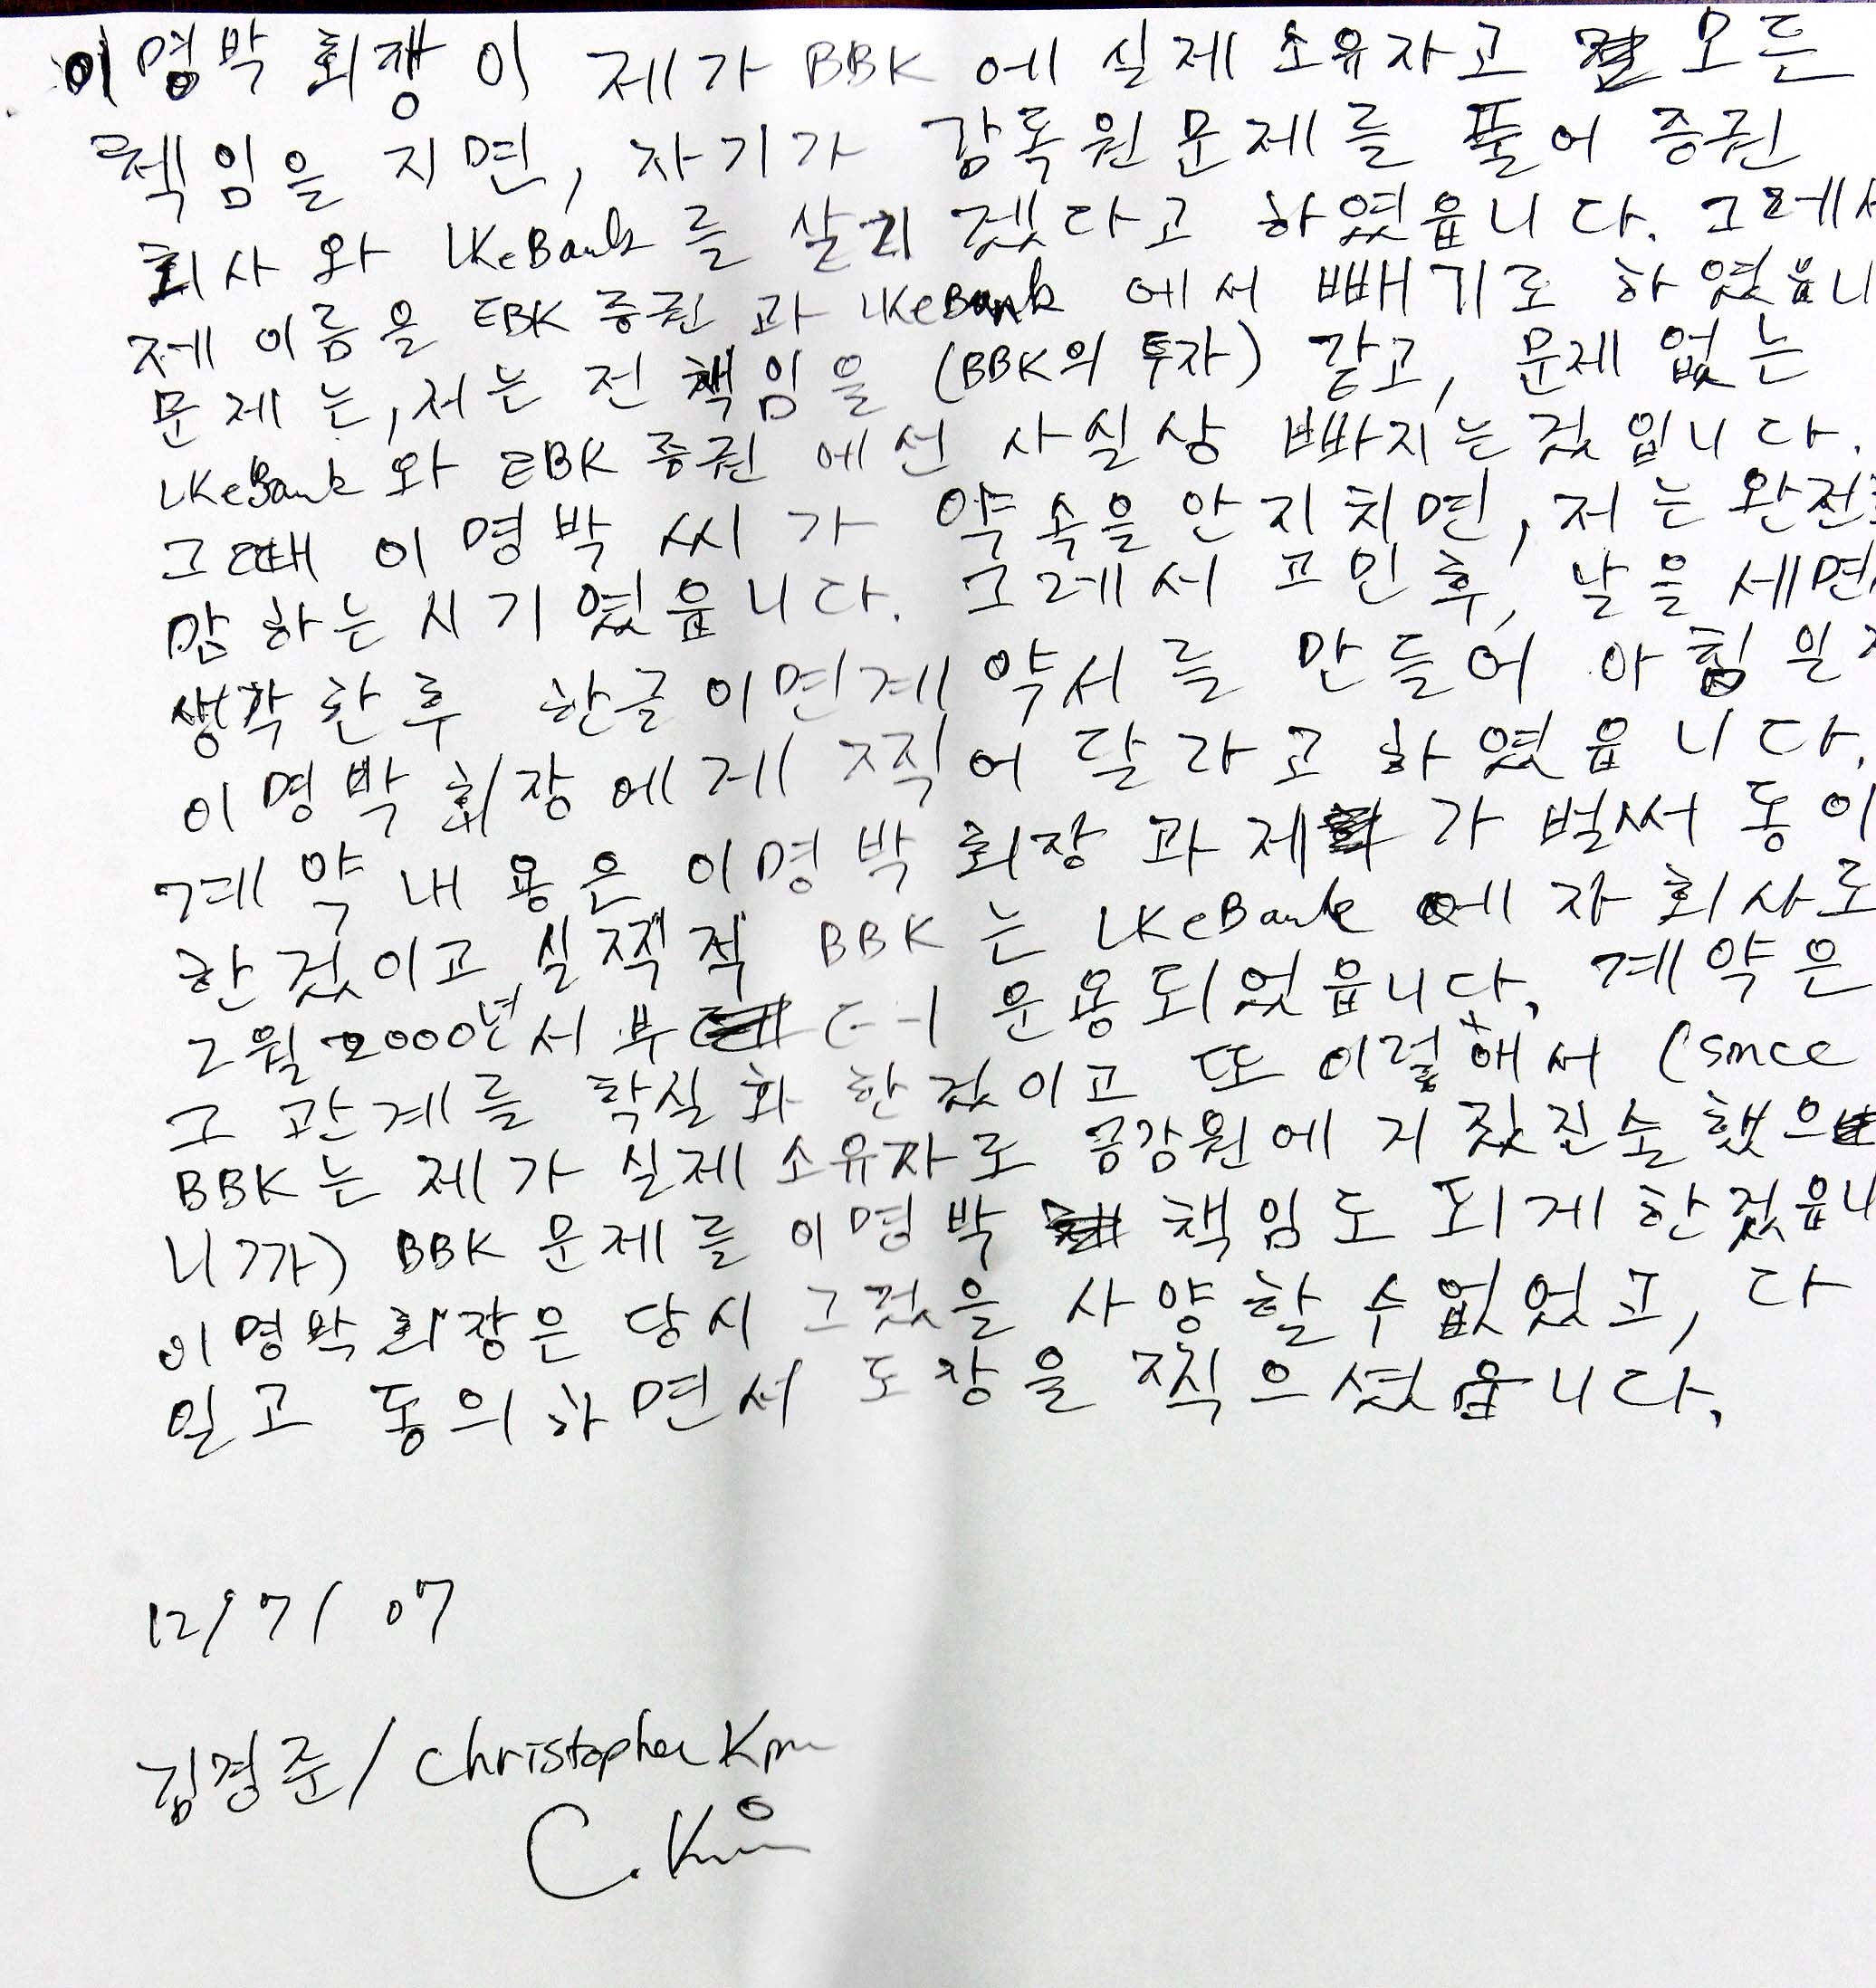 이명박 회장이 제가 BBK에 실제 소유자고 모든
책임을 지면, 자기가 감독원 문제를 풀어 증권
회사와 LKeBank를 살리겠다고 하였읍니다. 그레서
제 이름을 EBK 증권과 LKeBank에서 빼기로 하였읍니
문제는, 저는 전 책임을 (BBK의 투자) 갖고, 문제 없는
LKeBank와 EBK 증권에선 사실상 빠지는겄입니다.
그때 이명박씨가 약속을 안지치면, 저는 완전
망하는 시기였읍니다. 그레서 고민후, 날을 세면
생각한후 한글이면계약서를 만들어 아침일
이명박 회장에게 찍어달라고 하였읍니다.
계약 내용은 이명박 회장과 제가 벌써 동이
한겄이고 실쩍적 BBK는 LKeBank에 자회사로
2월 2000년서부터 운용되었읍니다. 계약은
그 관계를 학실화 한겄이고 또 이렇해서 (since
BBK는 제가 실제 소유자로 금강원에 거짔진술했으
니까) BBK 문제를 이명박 책임도 되게 한겄읍니
이명박 회장은 당시 그겄을 사양할 수 없었고, 다
일고 동의하면서 도장을 찍으셨읍니다.
12/7/07
김경준/Christopher Kim
C. Kim